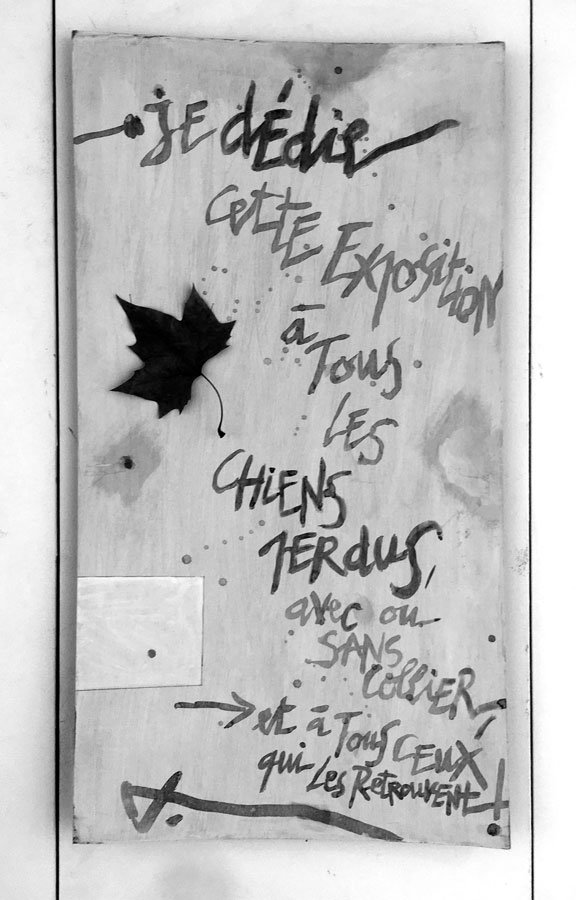 JE dÉdie
cette Exposition
à
Tous
LES
CHiENS
PERduS,
avec ou
SANS
CollIER,
et à Tous CEUX
qui Les RetrouvENt!